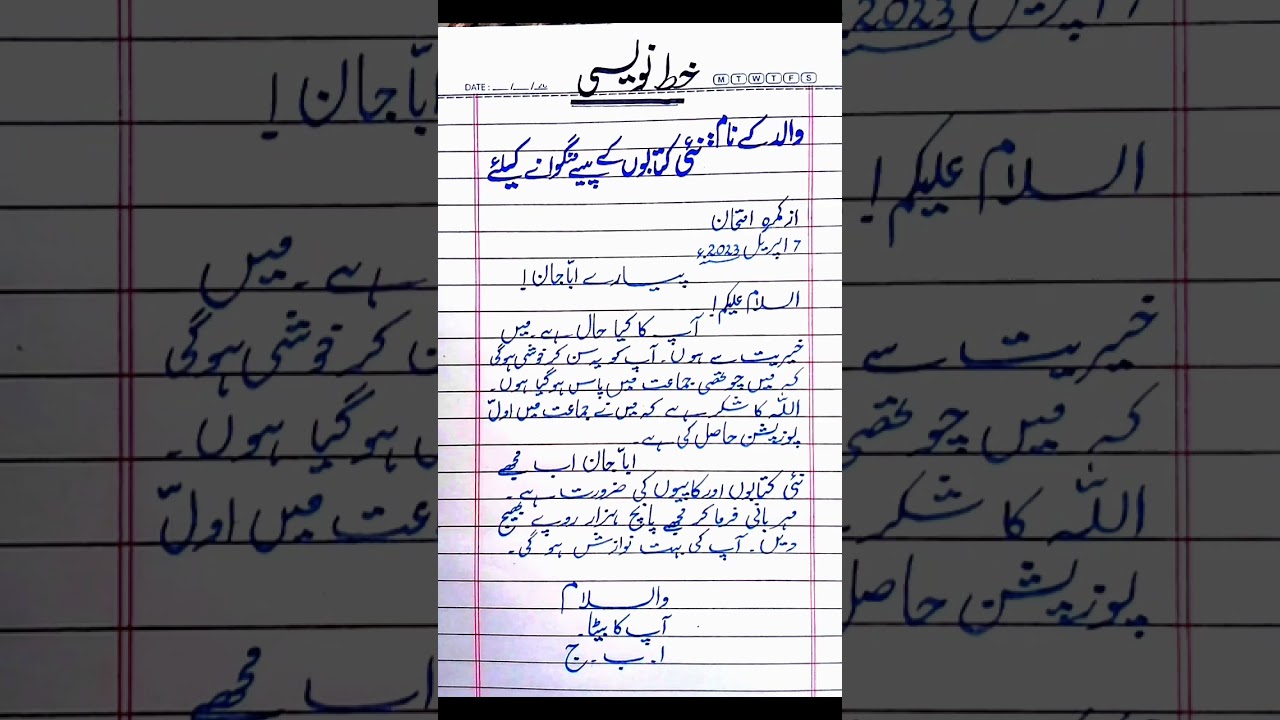 خط نویسی
M T W T F S
DATE: __/__/20
والد کے نام: نئی کتابوں کے پیسے منگوانے کیلئے
از کمرہ امتحان
7 اپریل 2023ء
پیارے ابّا جان!
السلام علیکم!
آپ کا کیا حال ہے۔ میں
خیریت سے ہوں۔ آپ کو یہ سن کر خوشی ہوگی
کہ میں چوتھی جماعت میں پاس ہوگیا ہوں۔
اللّٰہ کا شکر ہے کہ میں نے جماعت میں اولّ
پوزیشن حاصل کی ہے۔
ابّا جان اب مجھے
نئی کتابوں اور کاپیوں کی ضرورت ہے۔
مہربانی فرما کر مجھے پانچ ہزار روپے بھیج
دیں۔ آپ کی بہت نوازش ہو گی۔
والسلام
آپ کا بیٹا۔
ا۔ ب۔ ج